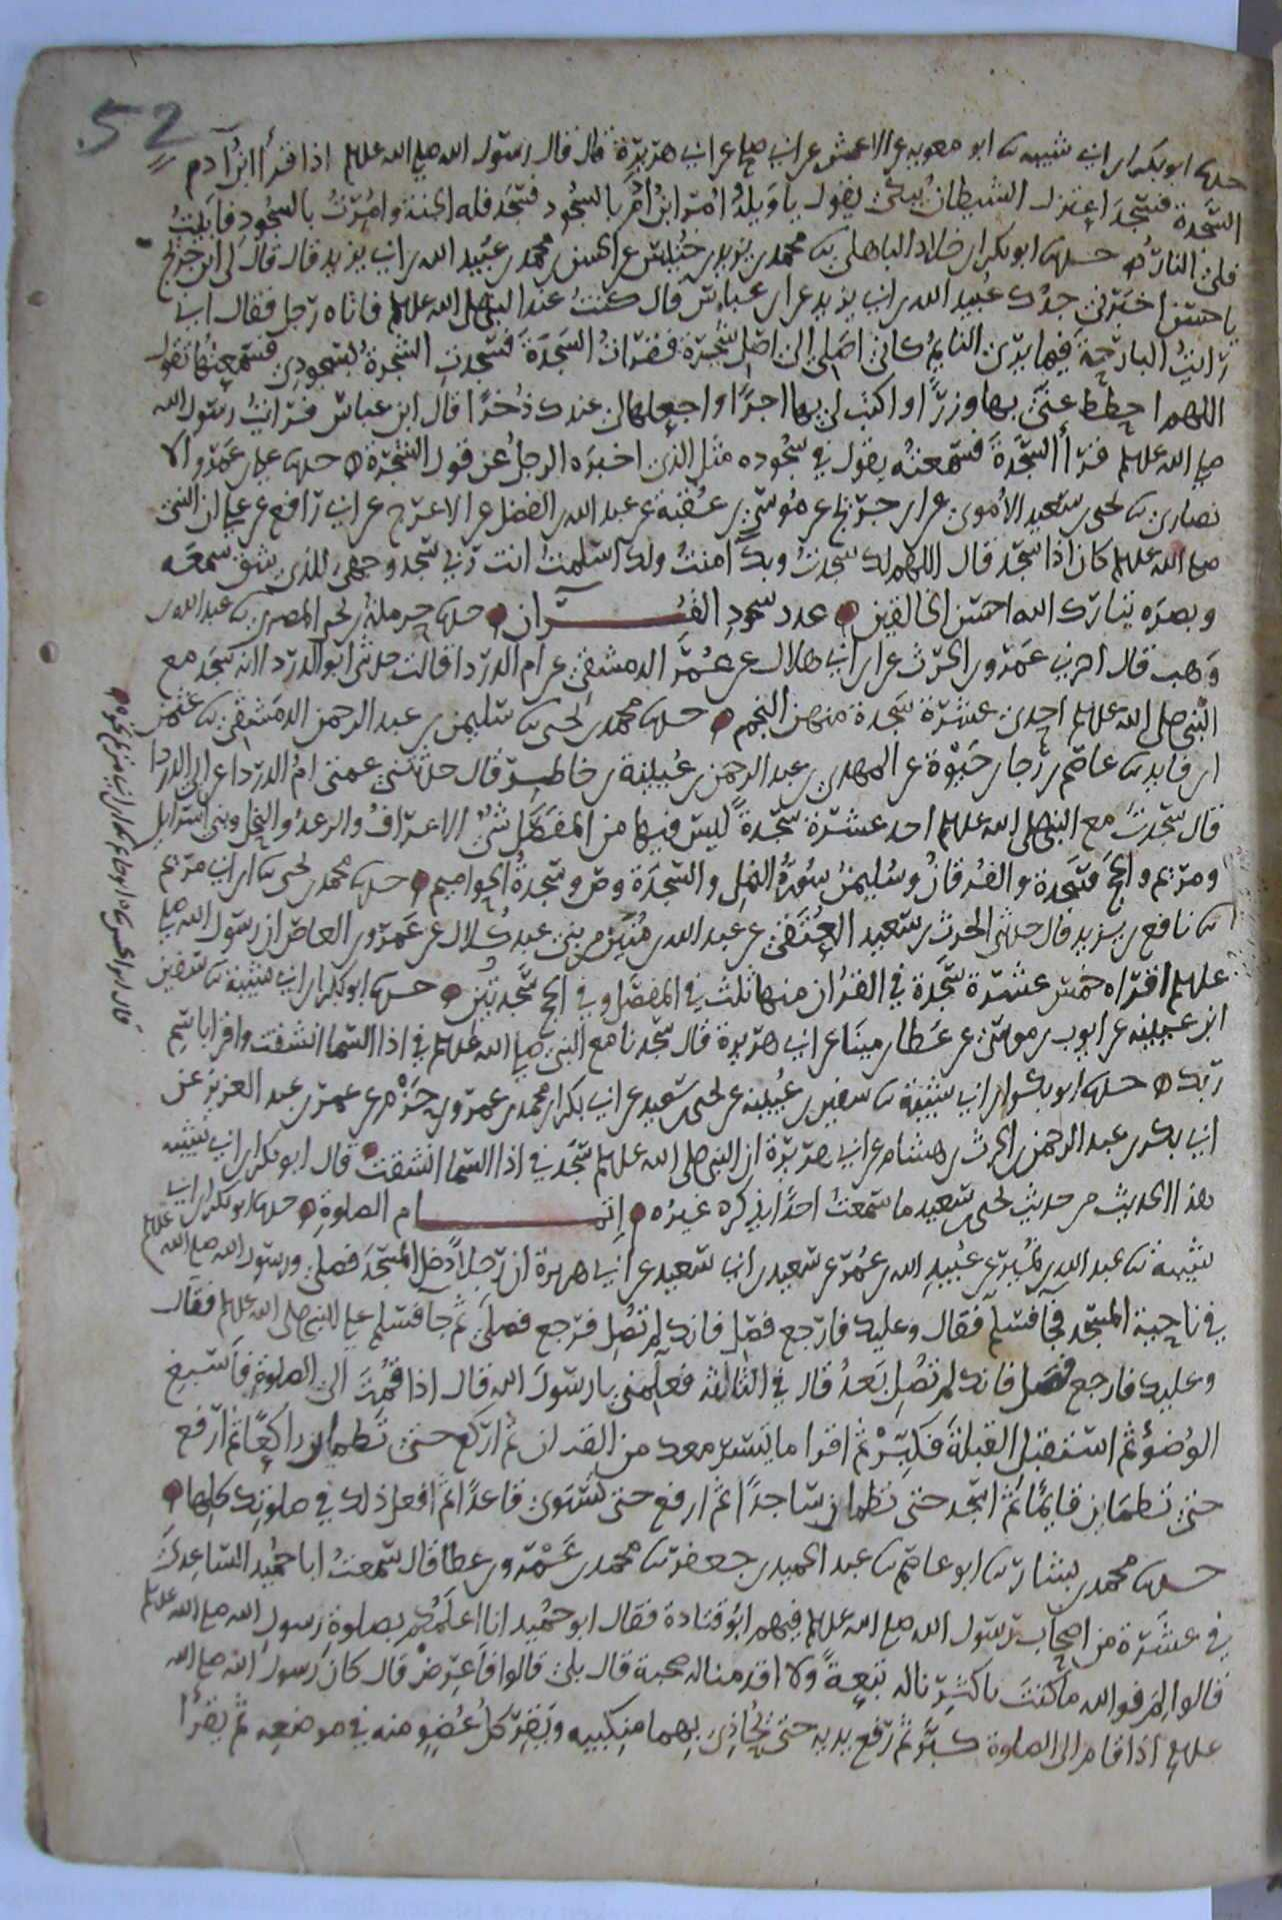 52
حدثنا ابو بكر ابن ابي شيبه ثنا ابو معويه عن الاعمش عن ابي صالح عن ابي هريرة قال قال رسول الله صلى الله عليه وسلم اذا قرأ ابن آدم
السَّجدة فسَجَدَ اعتزل الشيطان يبكي يقول يا ويله اُمِرَ ابن ادمَ بالسجُود فسَجَد فله الجنة واُمِرتُ بالسجُود فابَيتُ
فلي النارُ حدثنا ابو بكر ابن خلاد الباهلي ثنا محمد بن يزيد بن خُنَيس عن الحسن بن محمد بن عبَيد الله بن ابي يزيد قال قال لي ابن جريج
يا حسن اخبَرني جدُك عبيد الله بن ابي يزيد عن ابن عباس قال كنتُ عند النبي صلى الله عليه وسلم فاتاه رجل فقال اني
رايتُ البارحة فيما يرى النايمُ كاني اصَلي الى اصل شجرة فقرات السَّجدَة فسَجدتِ الشجرةُ لسجودي فسمعتها تقول
اللهم احطط عنّي بها وزرًا واكتب لي بها اجرًا واجعلها لي عندك ذُخرًا قال ابن عباس فرايتُ رسول الله
صلى الله عليه وسلم قرأ السَّجدةَ فسمعتُه يقول في سجُوده مثل الذي اخبره الرجلُ عن قول الشجرة حدثنا علي بن عَمرو الا
نصاري ثنا يحيى بن سَعيد الاُموي عن ابن جرَيج عن مُوسَى بن عُقبَة عن عبد الله بن الفضل عن الاعرج عن ابي رافع عن علي ان النبي
صلى الله عليه وسلم كان اذا سَجَد قال اللهم لك سَجدتُ وبكَ امنتُ ولك اسلمتُ انت ربي سَجد وجهي للذي شق سمعَه
وبصرَه تبارك الله احسَن الخالقين عدد سجُودِ القُرآن حدثنا حرملة بن يحيى المصري ثنا عبد الله بن
وَهب قال اخبرني عَمرو بن الحرث عن ابن ابي هلال عن عُمَر الدمشقي عن ام الدرداء قالت حدثني ابو الدرداء انه سَجَد مع
النبي صلى الله عليه وسلم احدى عشرة سَجدة منهن النجم حدثنا محمد بن يحيى ثنا سُليمن بن عبد الرحمن الدمَشقي ثنا عثمن
ابن فايد ثنا عاصم بن رجاء بن حَيوَة عن المهدي بن عبد الرحمن بن عُيينة بن خاطر قال حدثتني عمتي امُ الدرداء عن ابي الدرداء
قال سَجدتُ مع النبي صلى الله عليه وسلم احد عشرة سَجدةً ليس فيها من المفصَّل شيٌ الاعرافُ والرعدُ والنحل وبني اسرايل
ومريم والحج سَجدة والفُرقان وسُليمن سُورَة النمل والسَّجدَة وص وسَجدةُ الحواميم حدثنا محمد بن يحيى ثنا ابن ابي مريم
ثنا نافع بن يزيد قال حدثني الحرث بن سَعيد العُتَقي عن عبد الله بن مُنَين من بني عبد كُلال عن عَمرو بن العاص ان رسول الله صلى الله
عليه وسلم اقراه خمسَ عشرة سَجدة في القرآن منها ثلث في المفصَّل وفي الحج سَجدتين حدثنا ابو بكر ابن ابي شيبة ثنا سفين
ابن عيينه عن ايوب بن موسى عن عَطاء بن ميناء عن ابي هريرة قال سَجدنا مع النبي صلى الله عليه وسلم في اذا السَّما انشقت واقرا باسم
ربّك حدثنا ابو بكر ابن ابي شيبة ثنا سفين بن عُيينه عن يحيى بن سَعيد عن ابي بكر بن محمد بن عمرو بن حَزْم عن عمر بن عبد العزيز عن
ابي بكر بن عبد الرحمن بن الحرث بن هشام عن ابي هريرة ان النبي صلى الله عليه وسلم سَجَد في اذا السَّما انشقت قال ابو بكر ابن ابي شيبه
هذا الحديث من حديث يحيى بن سعيد ما سَمعتُ احدًا يذكره غيرُه اِتمام الصلوةِ حدثنا ابو بكر ابن ابي
شيبة ثنا عبد الله بن نُمير عن عُبيد الله بن عُمَر عن سَعيد بن ابي سَعيد عن ابي هريرة ان رجلاً دخل المسجَد فصلى ورسول الله صلى الله عليه وسلم
في ناحية المسجد فجا فسلّم فقال وعليك فارجع فصَلِ فانك لم تُصَلِ فرجع فصلى ثم جا فسلم على النبي صلى الله عليه وسلم فقال
وعليك فارجع فصَل فانك لم تصَلِ بَعدُ قال في الثالثة فعلّمني يا رسولَ الله قال اذا قمتَ الى الصلوةِ فأسبغ
الوضُوء ثم استقبل القبلةَ فكبِّرْ ثم اقرا ما تيسَّر معك من القران ثم اركع حتى تطمان راكعًا ثم ارفع
حتى تطمَاين قايمًا ثم اسجد حتى تطمان سَاجدًا ثم ارفع حتى تستوي قاعدًا ثم افعل ذلك في صلوتك كلِها
حدثنا محمد بن بشار ثنا ابو عاصم ثنا عبد الحميد بن جعفر ثنا محمد بن عَمْرو بن عطا قال سَمعتُ ابا حُمَيد السَّاعِديَّ
في عشَرة من اصحاب رَسول الله صلى الله عليه وسلم فيهم ابُو قتادة فقال ابو حمُيد انا اعلَمُكُم بصلوةِ رَسولِ الله صلى الله عليه وسلم
قالوا لِمَ فوالله ما كنتَ باكثرِنا له تبَعةً ولا اقدمنا له صحبة قال بلى قالوا فاَعرِضْ قال كان رَسولُ الله صلى الله
عليه وسلم اذا قام الى الصلوة كبَّر ثم رفع يديه حتى يُحاذي بهما منكبيه ويَقِرّ كلُ عُضوٍ منه في موضعِه ثم يقرأُ